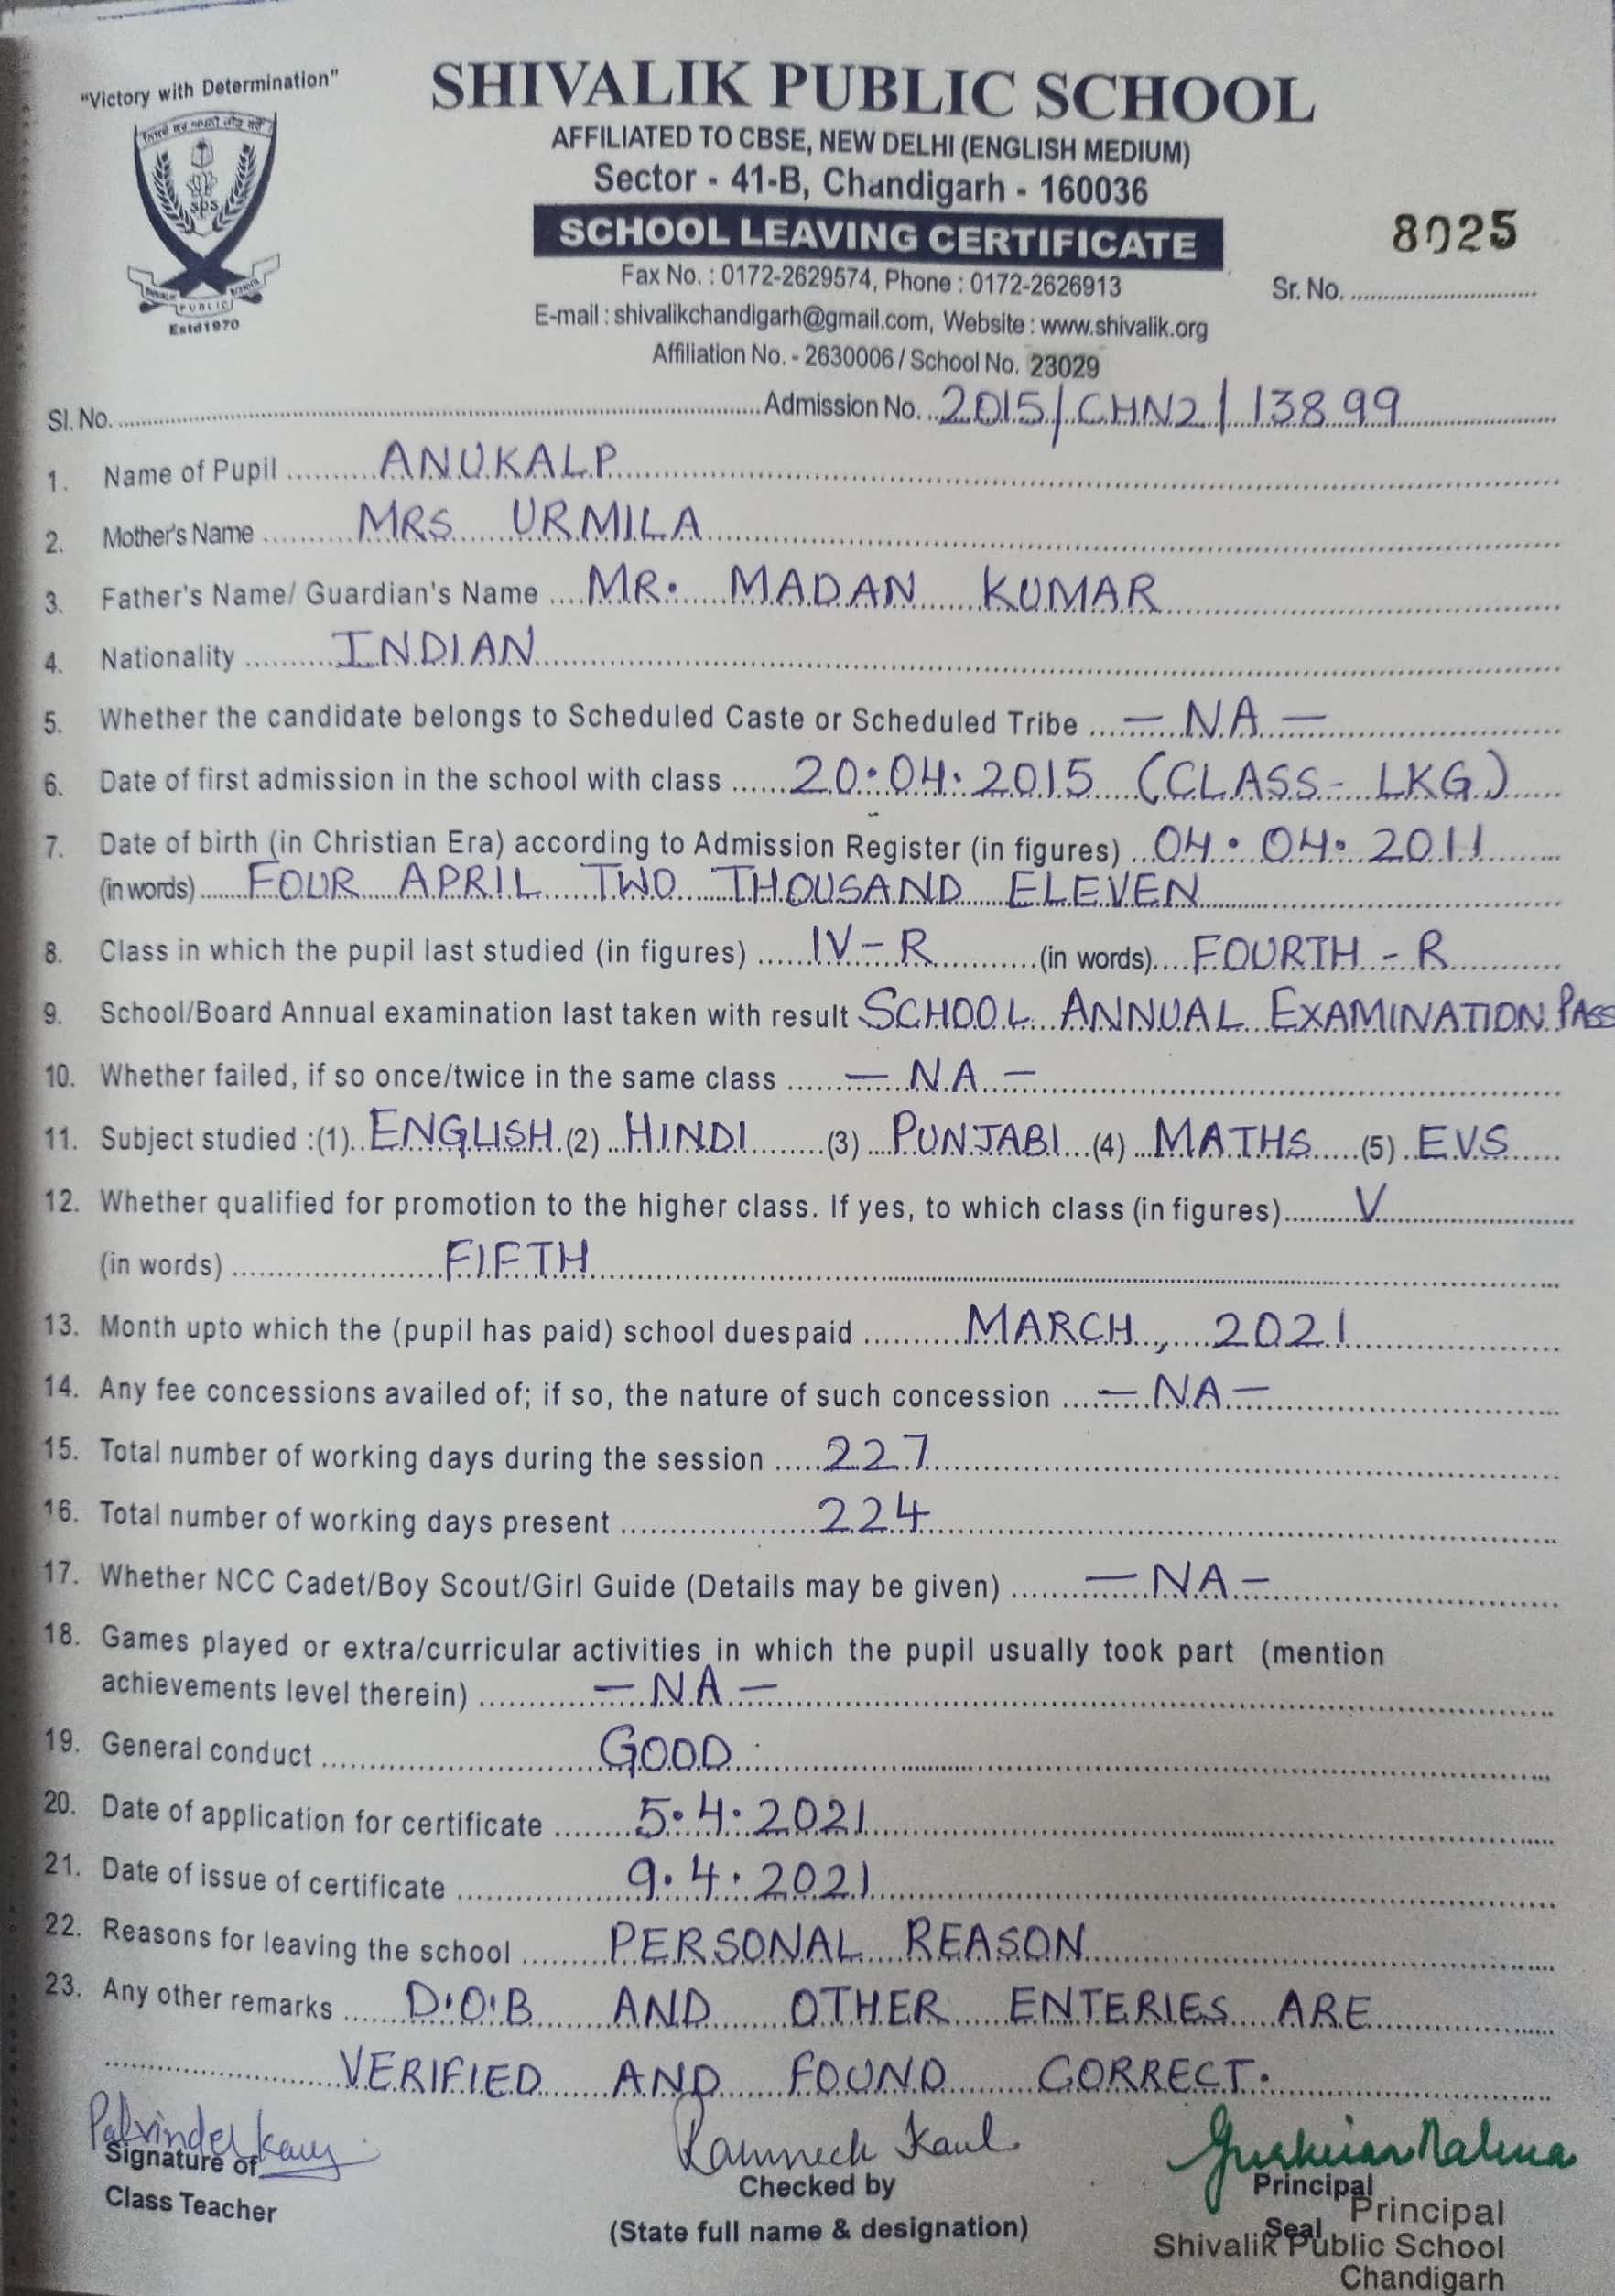 "Victory with Determination"
SHIVALIK PUBLIC SCHOOL
AFFILIATED TO CBSE, NEW DELHI (ENGLISH MEDIUM)
Sector - 41-B, Chandigarh - 160036
SCHOOL LEAVING CERTIFICATE
8025
Fax No. : 0172-2629574, Phone : 0172-2626913
Sr. No. ....................
E-mail : shivalikchandigarh@gmail.com, Website : www.shivalik.org
Affiliation No. - 2630006 / School No. 23029
sps
PUBLIC
Estd1970
Sl. No. .................... Admission No. 2015/CHN2/13899
1. Name of Pupil ANUKALP
2. Mother's Name MRS URMILA
3. Father's Name/ Guardian's Name MR. MADAN KUMAR
4. Nationality INDIAN
5. Whether the candidate belongs to Scheduled Caste or Scheduled Tribe — NA —
6. Date of first admission in the school with class 20.04.2015 (CLASS- LKG)
7. Date of birth (in Christian Era) according to Admission Register (in figures) 04.04.2011
(in words) FOUR APRIL TWO THOUSAND ELEVEN
8. Class in which the pupil last studied (in figures) IV-R (in words) FOURTH - R
9. School/Board Annual examination last taken with result SCHOOL ANNUAL EXAMINATION PASS
10. Whether failed, if so once/twice in the same class — NA —
11. Subject studied :(1) ENGLISH (2) HINDI (3) PUNJABI (4) MATHS (5) EVS
12. Whether qualified for promotion to the higher class. If yes, to which class (in figures) V
(in words) FIFTH
13. Month upto which the (pupil has paid) school duespaid MARCH, 2021
14. Any fee concessions availed of; if so, the nature of such concession — NA —
15. Total number of working days during the session 227
16. Total number of working days present 224
17. Whether NCC Cadet/Boy Scout/Girl Guide (Details may be given) — NA —
18. Games played or extra/curricular activities in which the pupil usually took part (mention
achievements level therein) — NA —
19. General conduct GOOD
20. Date of application for certificate 5.4.2021
21. Date of issue of certificate 9.4.2021
22. Reasons for leaving the school PERSONAL REASON
23. Any other remarks D.O.B AND OTHER ENTERIES ARE
VERIFIED AND FOUND CORRECT.
Palvinder Kaur
Signature of
Class Teacher
Kaul
Checked by
(State full name & designation)
Principal
Seal
Principal
Shivalik Public School
Chandigarh